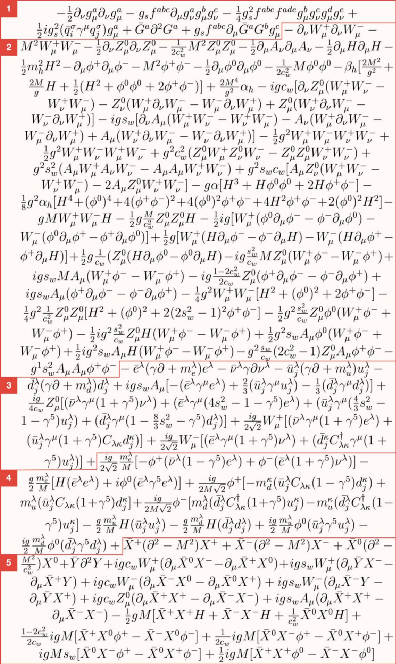 1 −½∂νg^a_μ∂νg^a_μ − g_s f^{abc}∂μg^a_νg^b_μg^c_ν − ¼g²_s f^{abc}f^{ade}g^b_μg^c_νg^d_μg^e_ν +
½ig²_s(q̄^σ_iγ^μq^σ_j)g^a_μ + Ḡ^a∂²G^a + g_s f^{abc}∂μḠ^aG^bg^c_μ − ∂νW⁺_μ∂νW⁻_μ −
2 M²W⁺_μW⁻_μ − ½∂νZ⁰_μ∂νZ⁰_μ − 1/(2c²_w) M²Z⁰_μZ⁰_μ − ½∂μAν∂μAν − ½∂μH∂μH −
½m²_hH² − ∂μφ⁺∂μφ⁻ − M²φ⁺φ⁻ − ½∂μφ⁰∂μφ⁰ − 1/(2c²_w) Mφ⁰φ⁰ − β_h[2M²/g² +
2M/g H + ½(H² + φ⁰φ⁰ + 2φ⁺φ⁻)] + 2M⁴/g² α_h − igc_w[∂νZ⁰_μ(W⁺_μW⁻_ν −
W⁺_νW⁻_μ) − Z⁰_ν(W⁺_μ∂νW⁻_μ − W⁻_μ∂νW⁺_μ) + Z⁰_μ(W⁺_ν∂νW⁻_μ −
W⁻_ν∂νW⁺_μ)] − igs_w[∂νAμ(W⁺_μW⁻_ν − W⁺_νW⁻_μ) − Aν(W⁺_μ∂νW⁻_μ −
W⁻_μ∂νW⁺_μ) + Aμ(W⁺_ν∂νW⁻_μ − W⁻_ν∂νW⁺_μ)] − ½g²W⁺_μW⁻_μW⁺_νW⁻_ν +
½g²W⁺_μW⁻_νW⁺_μW⁻_ν + g²c²_w(Z⁰_μW⁺_μZ⁰_νW⁻_ν − Z⁰_μZ⁰_μW⁺_νW⁻_ν) +
g²s²_w(AμW⁺_μAνW⁻_ν − AμAμW⁺_νW⁻_ν) + g²s_wc_w[AμZ⁰_ν(W⁺_μW⁻_ν −
W⁺_νW⁻_μ) − 2AμZ⁰_μW⁺_νW⁻_ν] − gα[H³ + Hφ⁰φ⁰ + 2Hφ⁺φ⁻] −
⅛g²α_h[H⁴+(φ⁰)⁴+4(φ⁺φ⁻)²+4(φ⁰)²φ⁺φ⁻+4H²φ⁺φ⁻+2(φ⁰)²H²] −
gMW⁺_μW⁻_μH − ½g M/c²_w Z⁰_μZ⁰_μH − ½ig[W⁺_μ(φ⁰∂μφ⁻ − φ⁻∂μφ⁰) −
W⁻_μ(φ⁰∂μφ⁺ − φ⁺∂μφ⁰)] + ½g[W⁺_μ(H∂μφ⁻ − φ⁻∂μH) − W⁻_μ(H∂μφ⁺ −
φ⁺∂μH)] + ½g 1/c_w (Z⁰_μ(H∂μφ⁰ − φ⁰∂μH) − ig s²_w/c_w MZ⁰_μ(W⁺_μφ⁻ − W⁻_μφ⁺) +
igs_wMAμ(W⁺_μφ⁻ − W⁻_μφ⁺) − ig (1−2c²_w)/(2c_w) Z⁰_μ(φ⁺∂μφ⁻ − φ⁻∂μφ⁺) +
igs_wAμ(φ⁺∂μφ⁻ − φ⁻∂μφ⁺) − ¼g²W⁺_μW⁻_μ[H² + (φ⁰)² + 2φ⁺φ⁻] −
¼g² 1/c²_w Z⁰_μZ⁰_μ[H² + (φ⁰)² + 2(2s²_w − 1)²φ⁺φ⁻] − ½g² s²_w/c_w Z⁰_μφ⁰(W⁺_μφ⁻ +
W⁻_μφ⁺) − ½ig² s²_w/c_w Z⁰_μH(W⁺_μφ⁻ − W⁻_μφ⁺) + ½g²s_wAμφ⁰(W⁺_μφ⁻ +
W⁻_μφ⁺) + ½ig²s_wAμH(W⁺_μφ⁻ − W⁻_μφ⁺) − g² s_w/c_w (2c²_w − 1)Z⁰_μAμφ⁺φ⁻ −
g¹s²_wAμAμφ⁺φ⁻ − ē^λ(γ∂ + m^λ_e)e^λ − ν̄^λγ∂ν^λ − ū^λ_j(γ∂ + m^λ_u)u^λ_j −
3 d̄^λ_j(γ∂ + m^λ_d)d^λ_j + igs_wAμ[−(ē^λγ^μe^λ) + ⅔(ū^λ_jγ^μu^λ_j) − ⅓(d̄^λ_jγ^μd^λ_j)] +
ig/(4c_w) Z⁰_μ[(ν̄^λγ^μ(1 + γ⁵)ν^λ) + (ē^λγ^μ(4s²_w − 1 − γ⁵)e^λ) + (ū^λ_jγ^μ(4/3 s²_w −
1 − γ⁵)u^λ_j) + (d̄^λ_jγ^μ(1 − 8/3 s²_w − γ⁵)d^λ_j)] + ig/(2√2) W⁺_μ[(ν̄^λγ^μ(1 + γ⁵)e^λ) +
(ū^λ_jγ^μ(1 + γ⁵)C_{λκ}d^κ_j)] + ig/(2√2) W⁻_μ[(ē^λγ^μ(1 + γ⁵)ν^λ) + (d̄^κ_jC†_{λκ}γ^μ(1 +
γ⁵)u^λ_j)] + ig/(2√2) m^λ_e/M [−φ⁺(ν̄^λ(1 − γ⁵)e^λ) + φ⁻(ē^λ(1 + γ⁵)ν^λ)] −
4 g/2 m^λ_e/M [H(ē^λe^λ) + iφ⁰(ē^λγ⁵e^λ)] + ig/(2M√2) φ⁺[−m^κ_d(ū^λ_jC_{λκ}(1 − γ⁵)d^κ_j) +
m^λ_u(ū^λ_jC_{λκ}(1 + γ⁵)d^κ_j] + ig/(2M√2) φ⁻[m^λ_d(d̄^λ_jC†_{λκ}(1 + γ⁵)u^κ_j) − m^κ_u(d̄^λ_jC†_{λκ}(1 −
γ⁵)u^κ_j] − g/2 m^λ_u/M H(ū^λ_ju^λ_j) − g/2 m^λ_d/M H(d̄^λ_jd^λ_j) + ig/2 m^λ_u/M φ⁰(ū^λ_jγ⁵u^λ_j) −
ig/2 m^λ_d/M φ⁰(d̄^λ_jγ⁵d^λ_j) + X̄⁺(∂² − M²)X⁺ + X̄⁻(∂² − M²)X⁻ + X̄⁰(∂² −
5 M²/c²_w)X⁰ + Ȳ∂²Y + igc_wW⁺_μ(∂μX̄⁰X⁻ − ∂μX̄⁺X⁰) + igs_wW⁺_μ(∂μȲX⁻ −
∂μX̄⁺Y) + igc_wW⁻_μ(∂μX̄⁻X⁰ − ∂μX̄⁰X⁺) + igs_wW⁻_μ(∂μX̄⁻Y −
∂μȲX⁺) + igc_wZ⁰_μ(∂μX̄⁺X⁺ − ∂μX̄⁻X⁻) + igs_wAμ(∂μX̄⁺X⁺ −
∂μX̄⁻X⁻) − ½gM[X̄⁺X⁺H + X̄⁻X⁻H + 1/c²_w X̄⁰X⁰H] +
(1−2c²_w)/(2c_w) igM[X̄⁺X⁰φ⁺ − X̄⁻X⁰φ⁻] + 1/(2c_w) igM[X̄⁰X⁻φ⁺ − X̄⁰X⁺φ⁻] +
igMs_w[X̄⁰X⁻φ⁺ − X̄⁰X⁺φ⁻] + ½igM[X̄⁺X⁺φ⁰ − X̄⁻X⁻φ⁰]